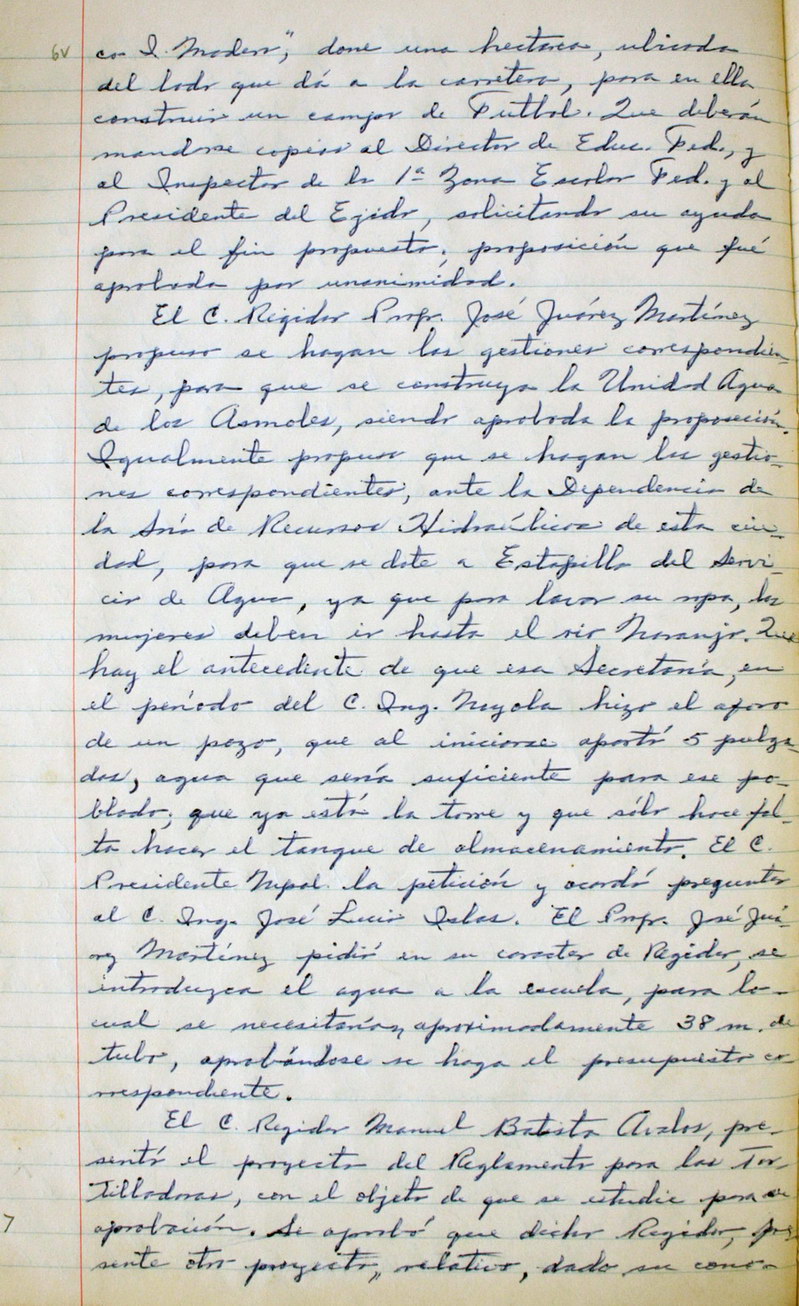 6v
co I. Madero", done una hectárea, ubicada
del lado que dá a la carretera, para en ella
construir un campo de Futbol. Que deberán
mandarse copias al Director de Educ. Fed., y
al Inspector de la 1ª Zona Escolar Fed. y al
Presidente del Ejido, solicitando su ayuda
para el fin propuesto; proposición que fué
aprobada por unanimidad.
El C. Regidor Profr. José Juárez Martínez
propuso se hagan las gestiones correspondien-
tes, para que se construya la Unidad Agua
de los Asmoles, siendo aprobada la proposición.
Igualmente propuso que se hagan las gestio-
nes correspondientes, ante la Dependencia de
la Sría de Recursos Hidraúlicos de esta ciu-
dad, para que se dote a Estapilla del servi-
cio de Agua, ya que para lavar su ropa, las
mujeres deben ir hasta el río Naranjo. Que
hay el antecedente de que esa Secretaría, en
el período del C. Ing. Noyola hizo el aforo
de un pozo, que al iniciarse aportó 5 pulga-
das, agua que sería suficiente para ese po-
blado; que ya está la torre y que sólo hace fal-
ta hacer el tanque de almacenamiento. El C.
Presidente Mpal. la petición y acordó preguntar
al C. Ing. José Lucio Islas. El Profr. José Juá-
rez Martínez pidió en su caracter de Regidor, se
introduzca el agua a la escuela, para lo-
cual se necesitarían, aproximadamente 38 m. de
tubo, aprobándose se haga el presupuesto co-
rrespondiente.
El C. Regidor Manuel Batista Avalos, pre-
sentó el proyecto del Reglamento para las Tor-
tilladoras, con el objeto de que se estudie para su
aprobación. Se aprobó que dicho Regidor, pre
7
sente otro proyecto, relativo, dado su cono-